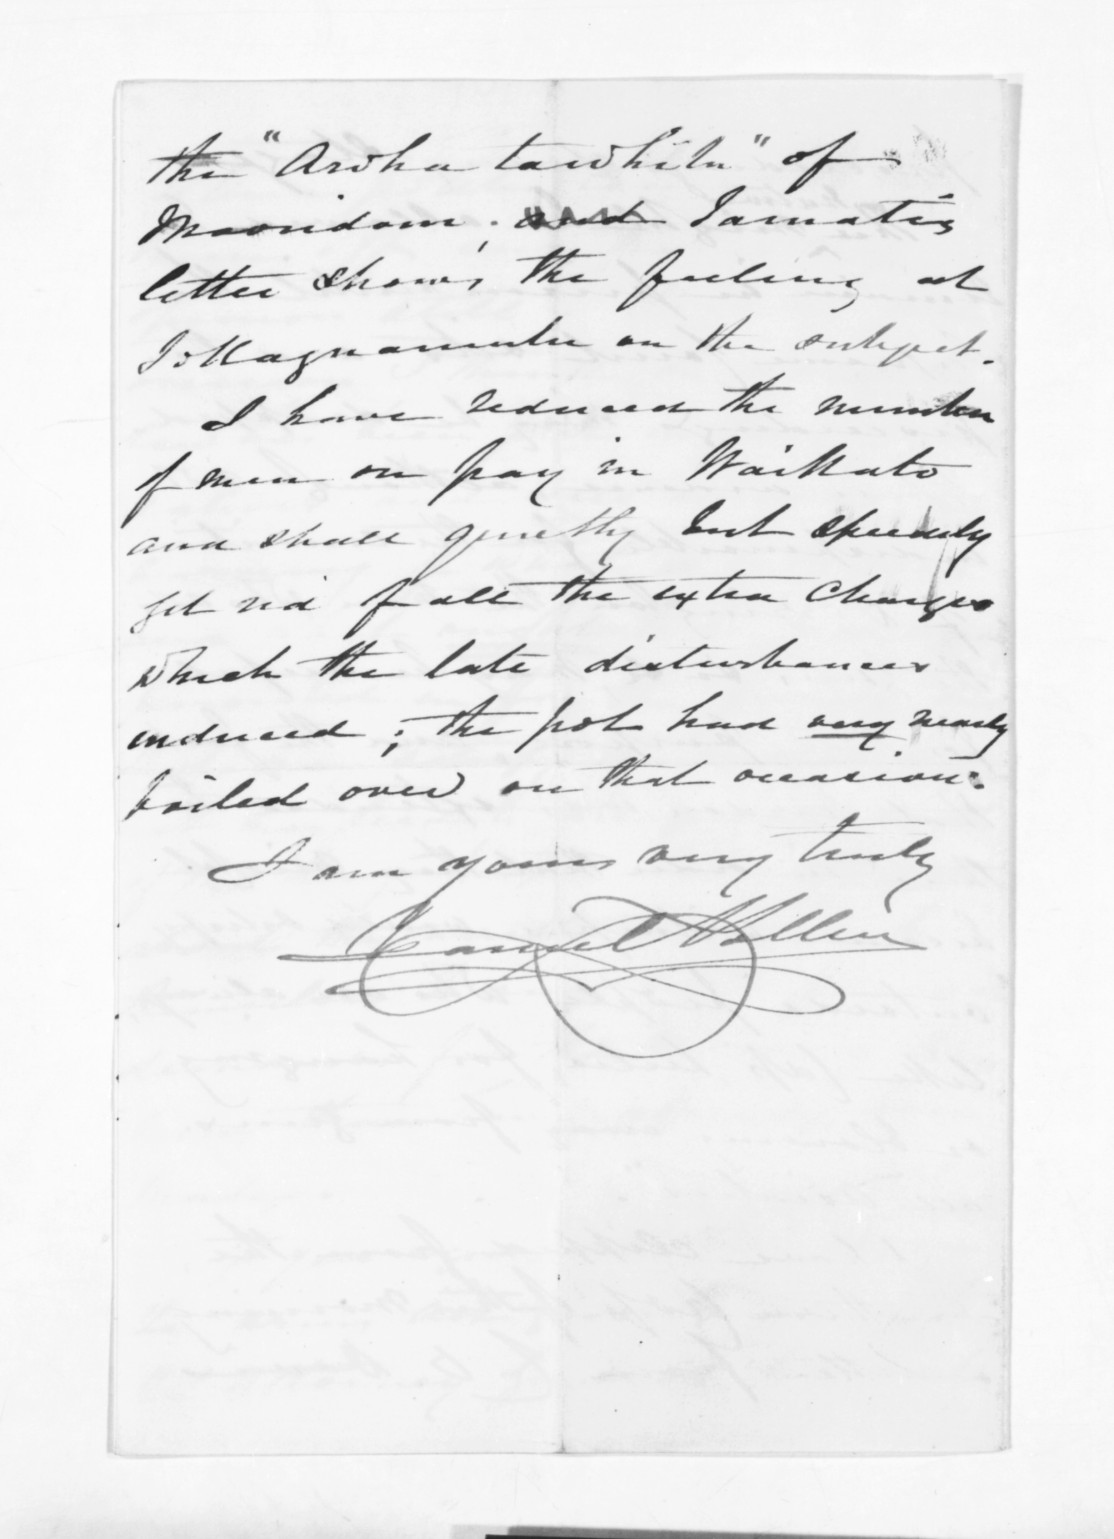 the "Aroha tawhiti" of
Maoridom; and Tamati's
letter shows the feeling at
Tokagnamutu on the subject.
I have reduced the number
of men on pay in Waikato
and shall quietly but speedily
get rid of all the extra charges
which the late disturbances
induced; the pot had very nearly
boiled over on that occasion.
I am yours very truly
Daniel Pollen